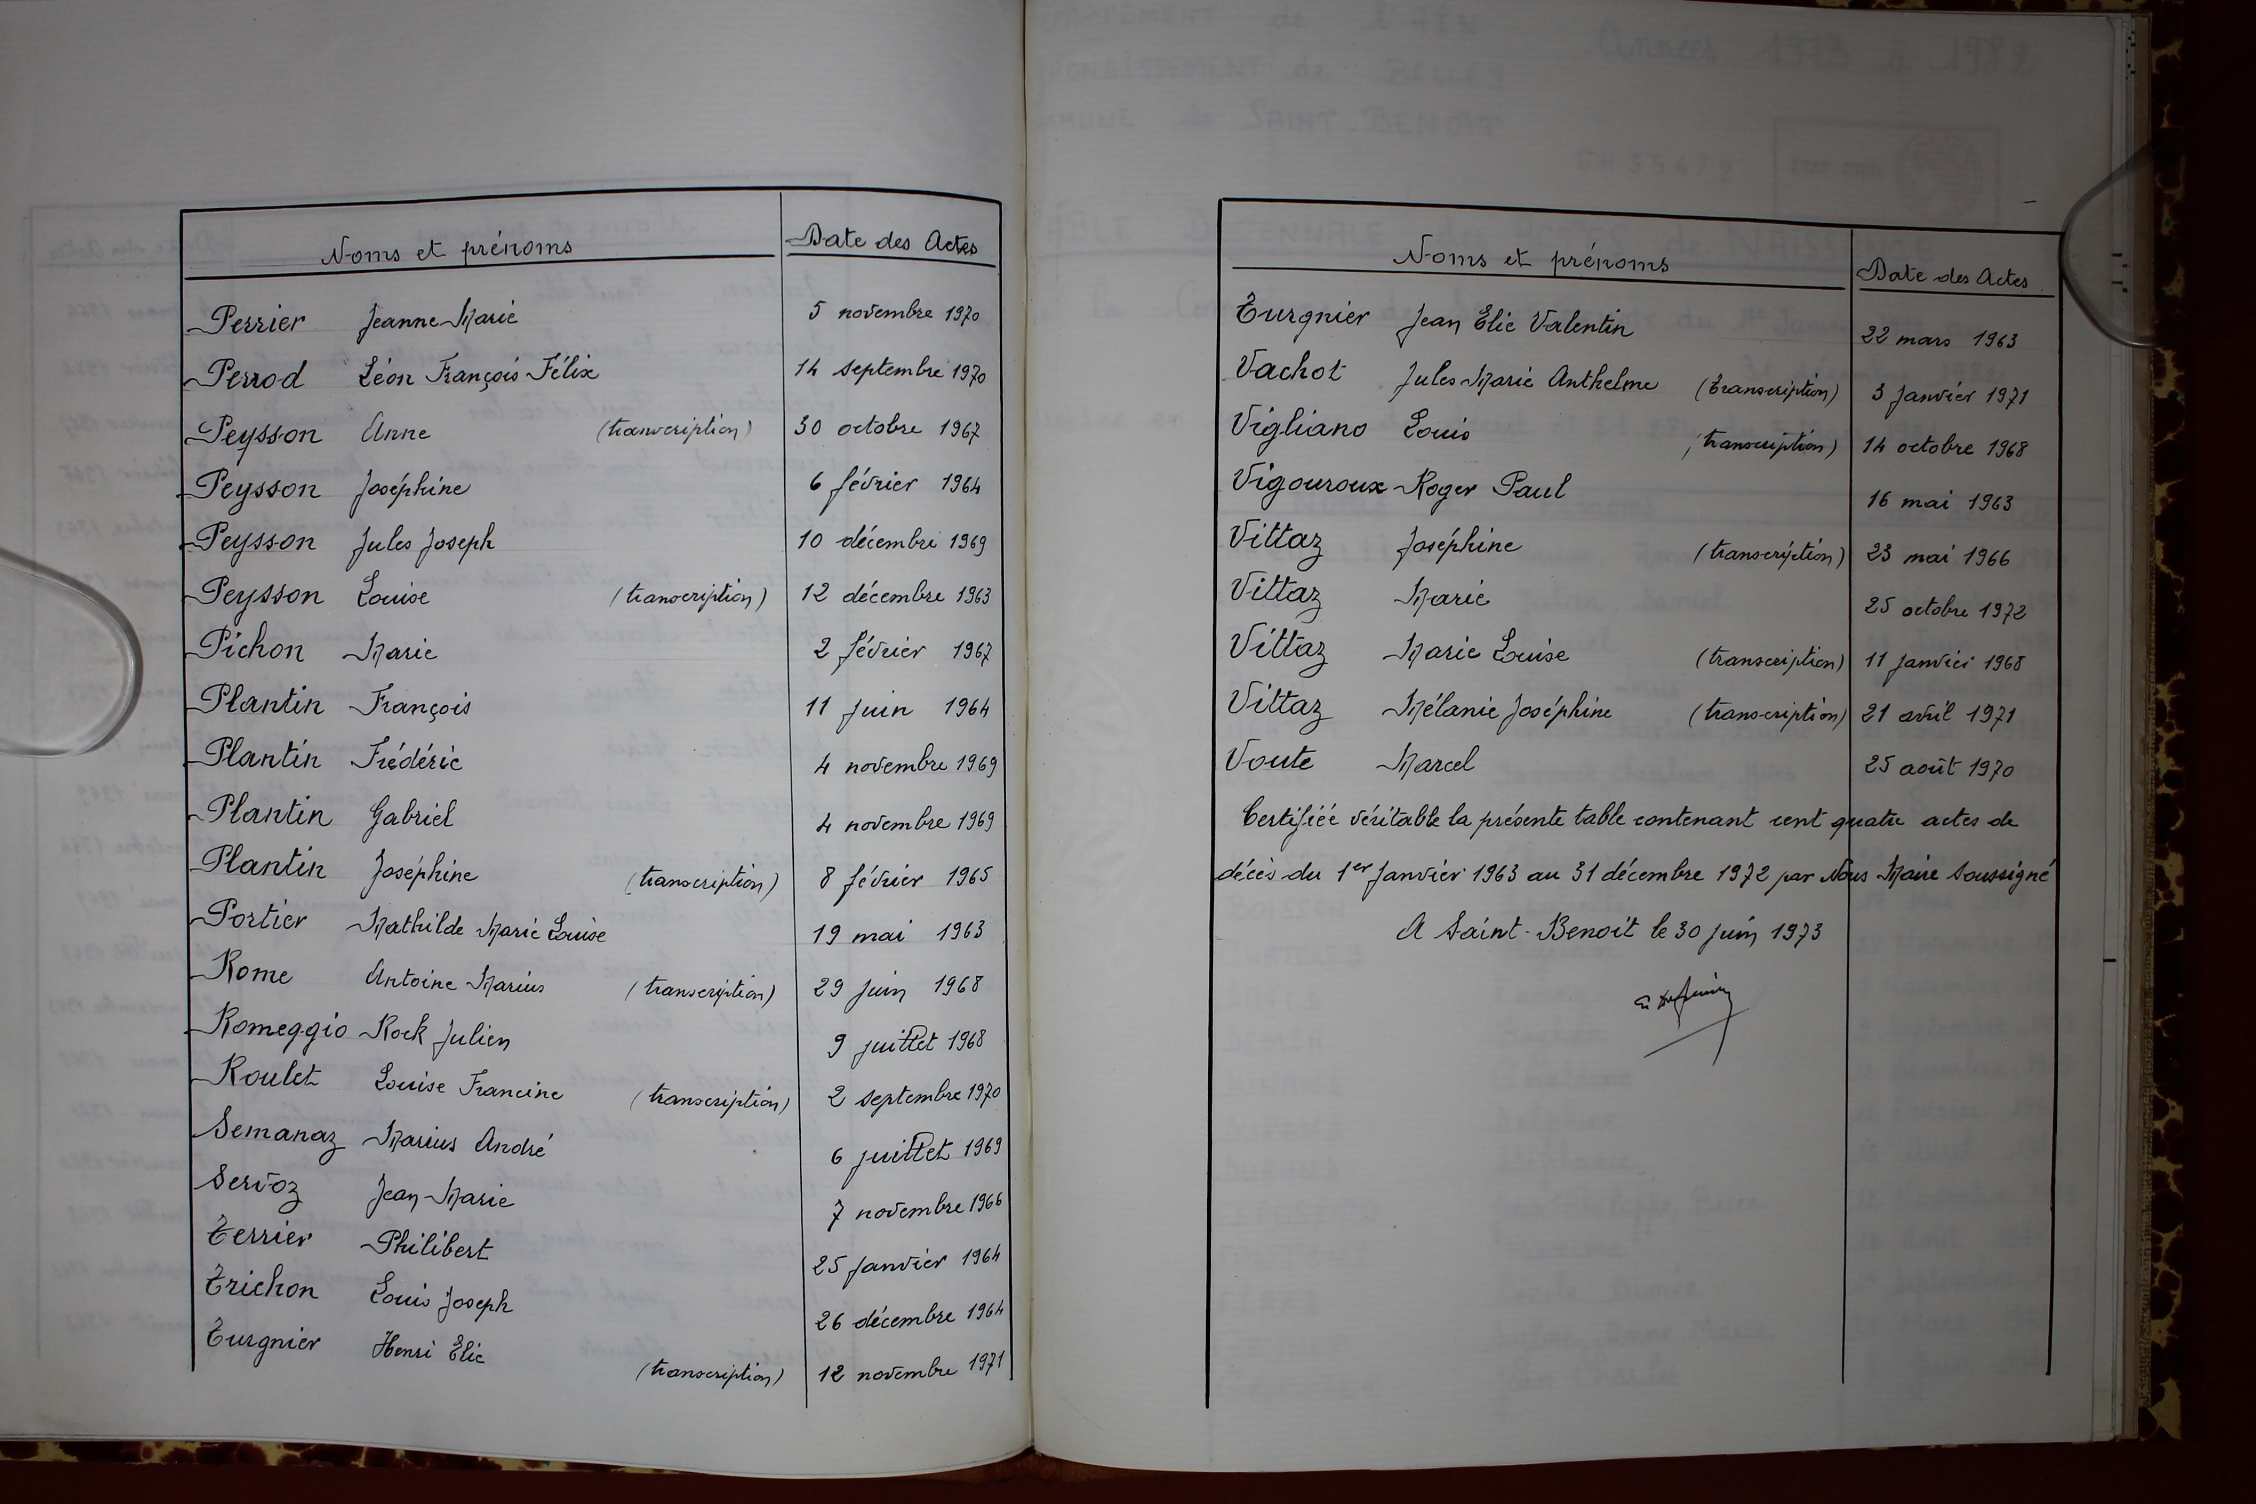 Noms et prénoms Date des Actes
Perrier Jeanne Marie 5 novembre 1970
Perrod Léon François Félix 14 septembre 1970
Peysson Anne (transcription) 30 octobre 1967
Peysson Joséphine 6 février 1964
Peysson Jules Joseph 10 décembre 1969
Peysson Louise (transcription) 12 décembre 1963
Pichon Marie 2 février 1967
Plantin François 11 juin 1964
Plantin Frédéric 4 novembre 1969
Plantin Gabriel 4 novembre 1969
Plantin Joséphine (transcription) 8 février 1965
Portier Mathilde Marie Louise 19 mai 1963
Rome Antoine Marius (transcription) 29 juin 1968
Romeggio Rock Julien 9 juillet 1968
Roulet Louise Francine (transcription) 2 septembre 1970
Semanaz Marius André 6 juillet 1969
Servoz Jean-Marie 7 novembre 1966
Terrier Philibert 25 janvier 1964
Trichon Louis Joseph 26 décembre 1964
Turgnier Henri Elie (transcription) 12 novembre 1971
Noms et prénoms Date des Actes
Turgnier Jean Elie Valentin 22 mars 1963
Vachot Jules Marie Anthelme (transcription) 3 janvier 1971
Vigliano Louis (transcription) 14 octobre 1968
Vigouroux Roger Paul 16 mai 1963
Vittaz Joséphine (transcription) 23 mai 1966
Vittaz Marie 25 octobre 1972
Vittaz Marie Louise (transcription) 11 janvier 1968
Vittaz Mélanie Joséphine (transcription) 21 avril 1971
Voute Marcel 25 août 1970
Certifiée véritable la présente table contenant cent quatre actes de
décès du 1er Janvier 1963 au 31 décembre 1972 par Nous Maire soussigné
A Saint-Benoit le 30 juin 1973